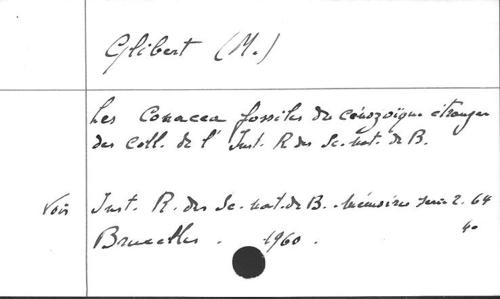 Glibert (M.)
Les Conacea fossiles du cénozoïque étranger
des coll. de l' Inst. R. des Sc. nat. de B.
Voir Inst. R. des Sc. nat. de B. Mémoires serie 2. 64
4o
Bruxelles. 1960.